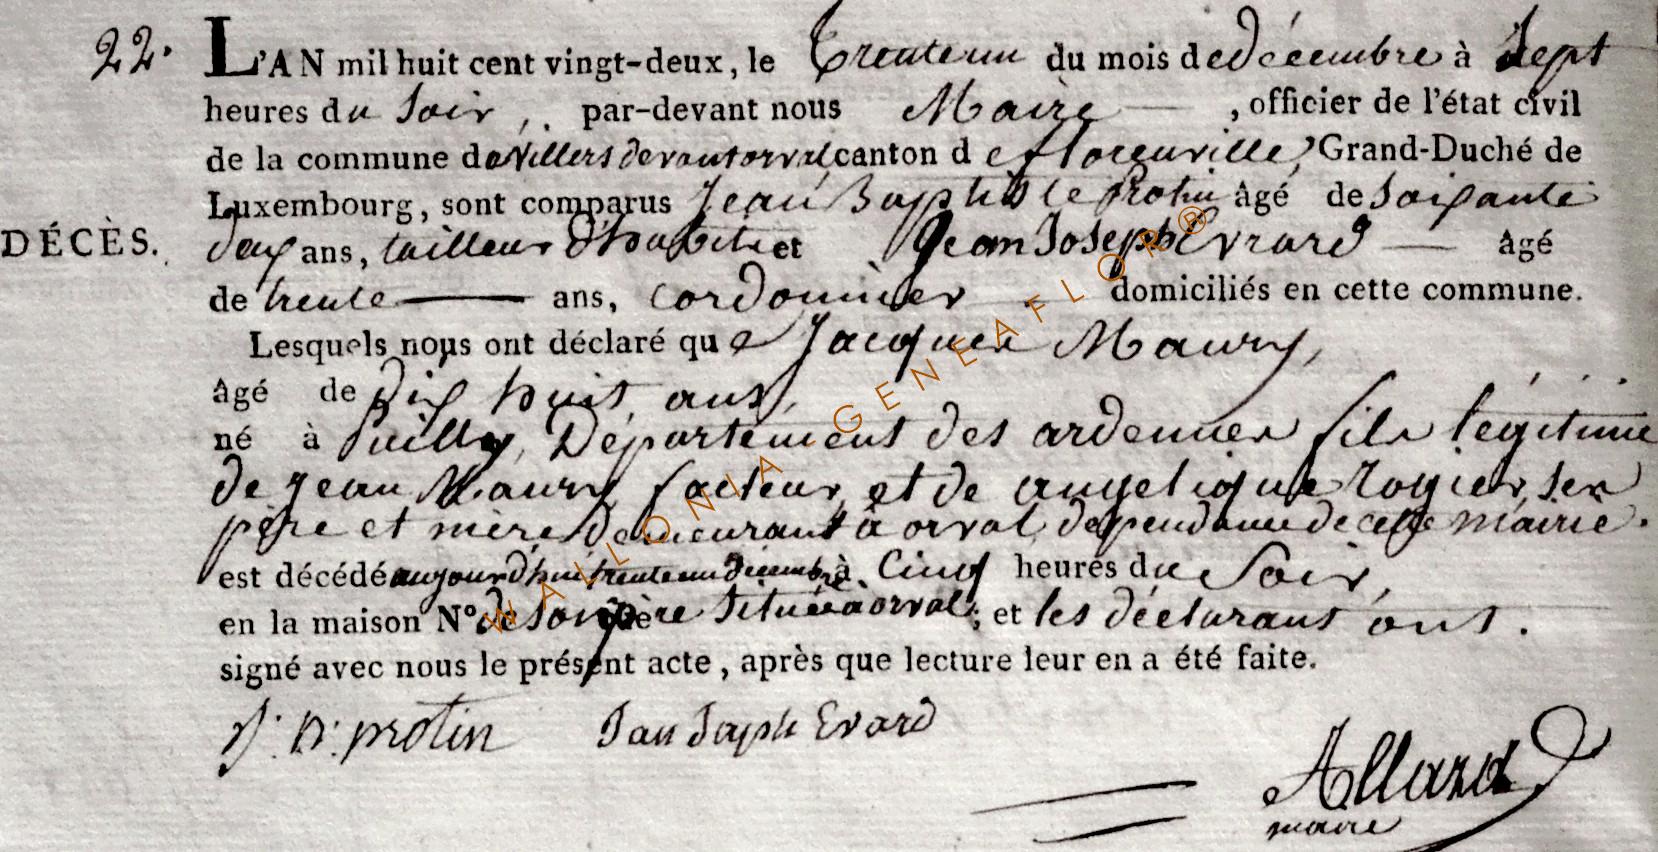 22. L'AN mil huit cent vingt-deux, le trente un du mois de décembre à Sept
heures du Soir, par-devant nous Maire — , officier de l'état civil
de la commune de Villers devant orval canton de florenville, Grand-Duché de
Luxembourg, sont comparus Jean Baptiste Protin âgé de Soixante
DÉCÈS. deux ans, tailleur d'habits et Jean Joseph Evrard — âgé
de trente — ans, cordonnier domiciliés en cette commune.
Lesquels nous ont déclaré que Jacques Maury,
âgé de dix huit ans,
né à Puilly, Département des ardennes fils légitime
de Jean Maury, facteur, et de angelique Rogier, ses
père et mère demeurant à orval, dépendance de cette mairie.
est décédé aujourd'hui trente un décembre à Cinq heures du Soir,
en la maison N° de Son père Située à orval ; et les déclarants ont.
signé avec nous le présent acte, après que lecture leur en a été faite.
J: B: protin Jan Joseph Evard
Allard
maire
WALLONIA - GENEAFLOR®